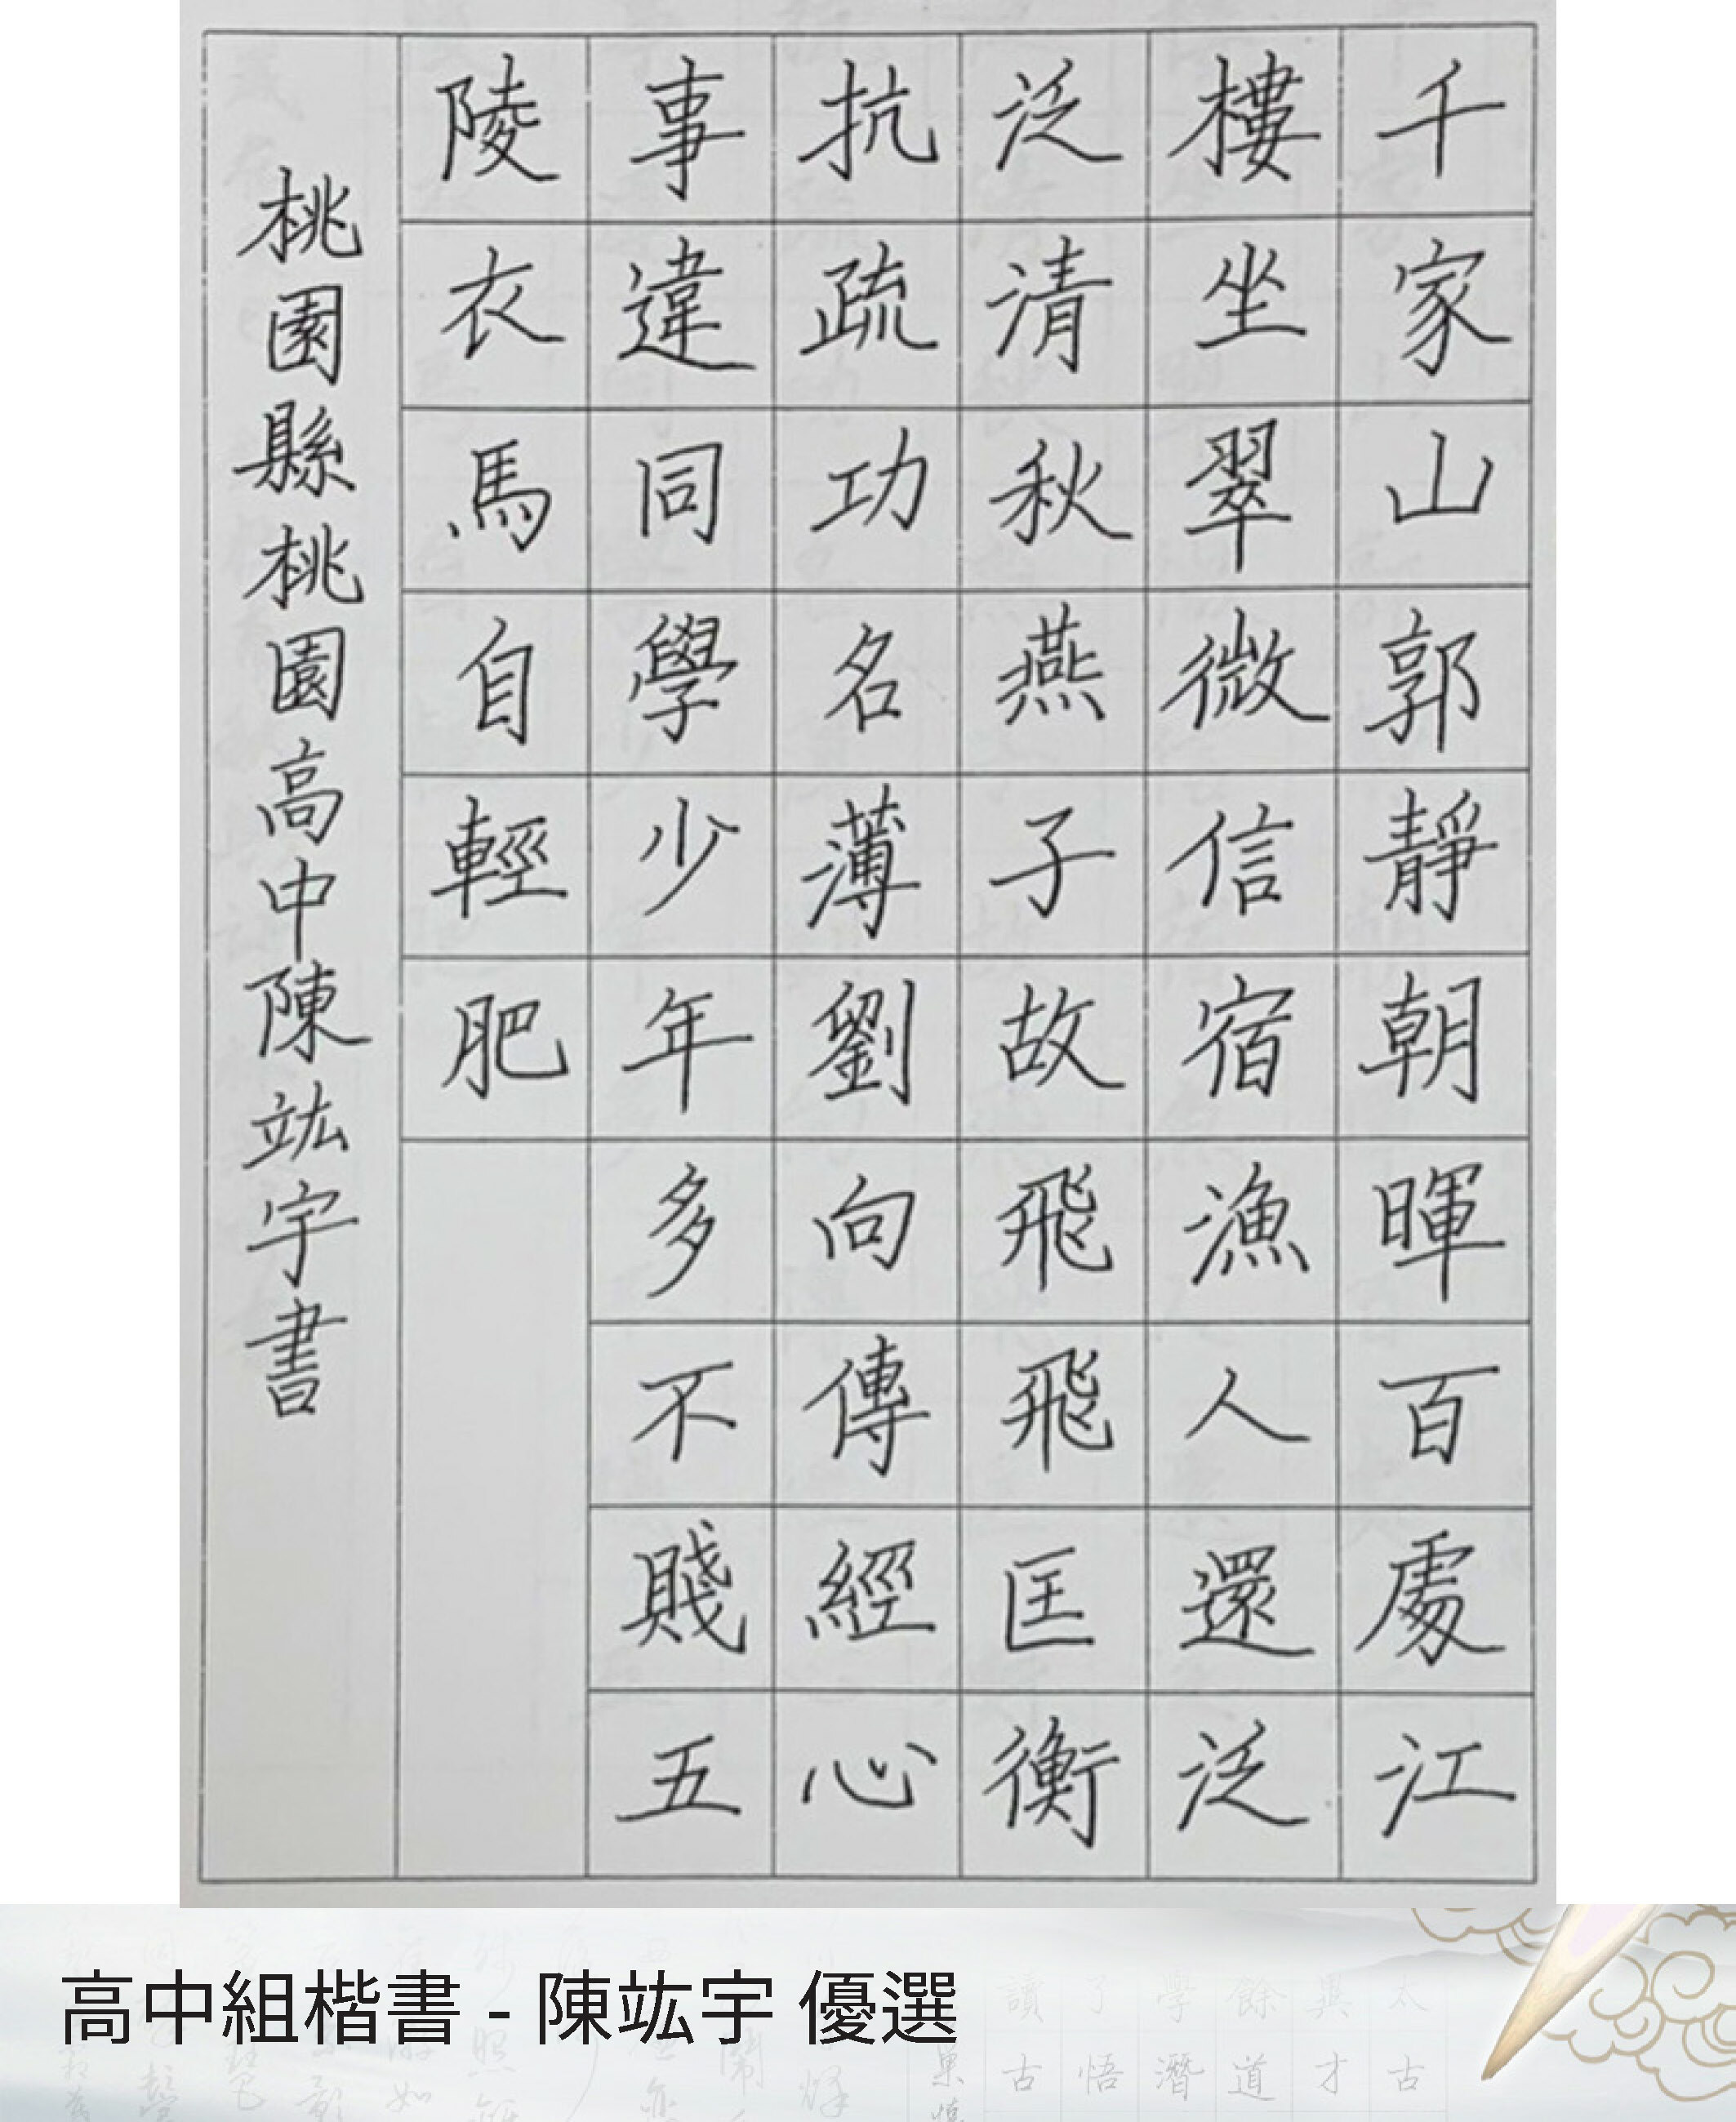 千家山郭靜朝暉百處江
樓坐翠微信宿漁人還泛
泛清秋燕子故飛飛匡衡
抗疏功名薄劉向傳經心
事違同學少年多不賤五
陵衣馬自輕肥
桃園縣桃園高中陳竑宇書
高中組楷書 - 陳竑宇 優選